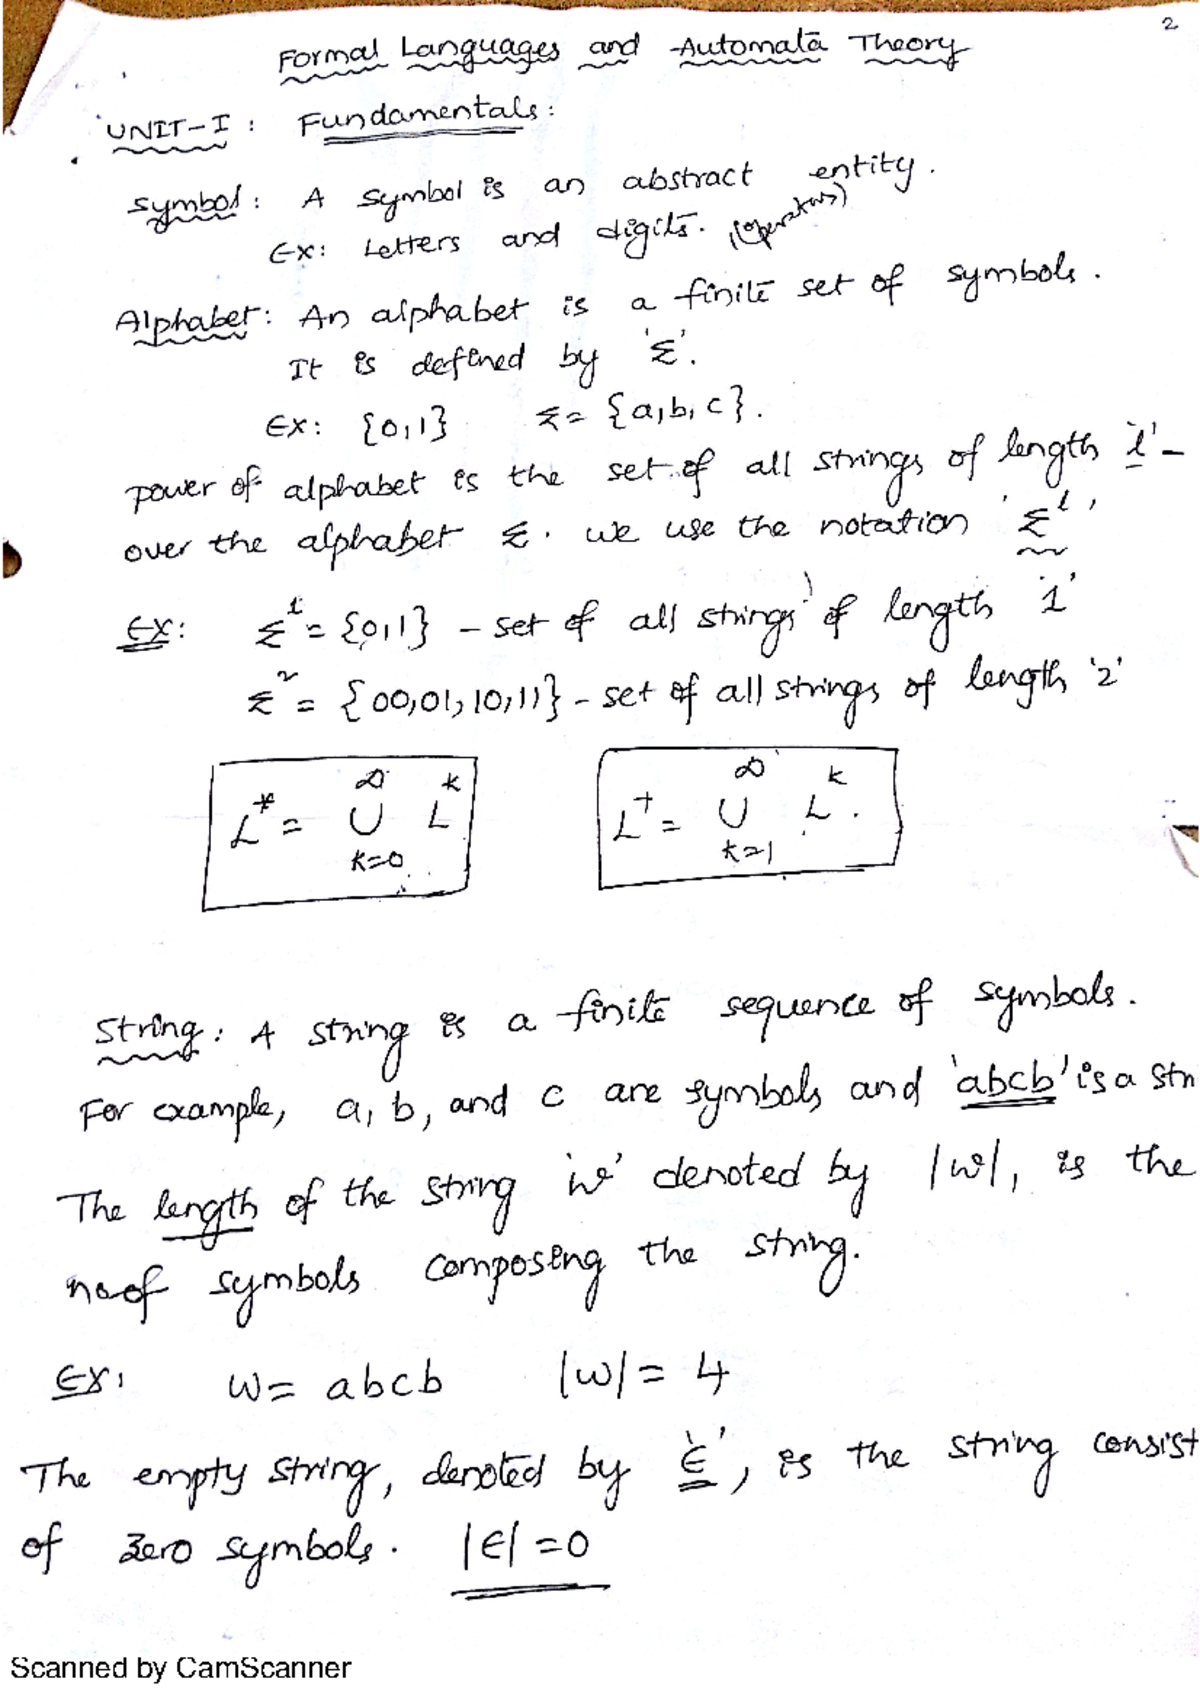 2
Formal Languages and Automata Theory
UNIT-I : Fundamentals:
Symbol: A symbol is an abstract entity.
Ex: Letters and digits. (operators)
Alphabet: An alphabet is a finite set of symbols.
It is defined by 'Σ'.
Ex: {0,1} Σ = {a,b,c}.
power of alphabet is the set of all strings of length 'l' -
over the alphabet Σ. we use the notation 'Σ^l'
Ex: Σ^1 = {0,1} - set of all strings of length '1'
Σ^2 = {00,01,10,11} - set of all strings of length '2'
L^* = ∞ ∪ k=0 L^k L^+ = ∞ ∪ k=1 L^k.
String: A string is a finite sequence of symbols.
For example, a, b, and c are symbols and 'abcb' is a strin
The length of the string 'w' denoted by |w|, is the
no of symbols composing the string.
Ex: w = abcb |w| = 4
The empty string, denoted by 'ϵ', is the string consist
of zero symbols. |ϵ| = 0
Scanned by CamScanner